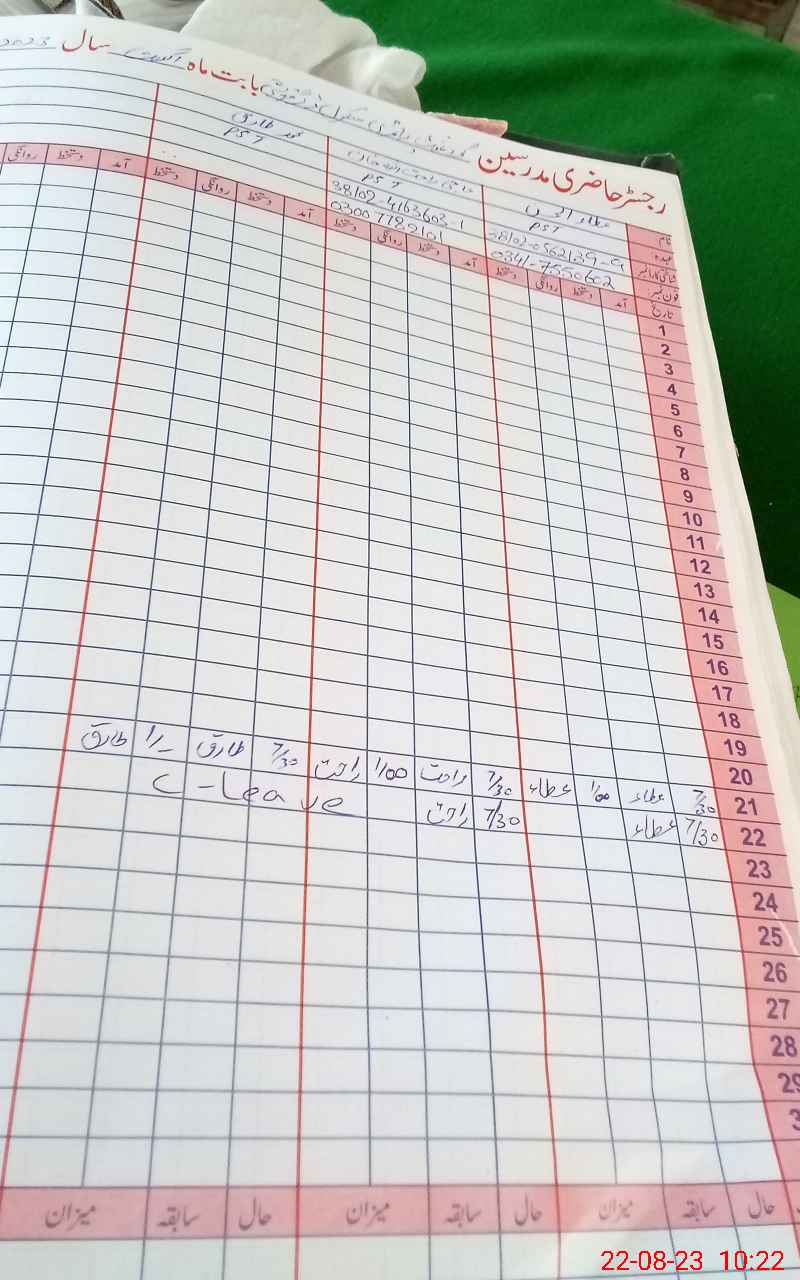 رجسٹر حاضری مدرسین گورنمنٹ پرائمری سکول بابت ماہ اگست سال 2023
نام عطاء الرحمن محمد طارق
عہدہ PST PST PST
شناختی کارڈ نمبر 38102-0562139-9 38102-4163603-1
فون نمبر: 0341-7550602 03007789101
تاریخ آمد دستخط روانگی دستخط آمد دستخط روانگی دستخط آمد دستخط روانگی دستخط آمد دستخط روانگی
1
2
3
4
5
6
7
8
9
10
11
12
13
14
15
16
17
18
19
20
21 7/30 عطاء 1/00 عطاء 7/30 راحت 1/00 راحت 7/30 طارق 1/- طارق
22 7/30 عطاء 7/30 راحت C-Leave
23
24
25
26
27
28
29
3
حال سابقہ میزان حال سابقہ میزان حال سابقہ میزان
22-08-23 10:22